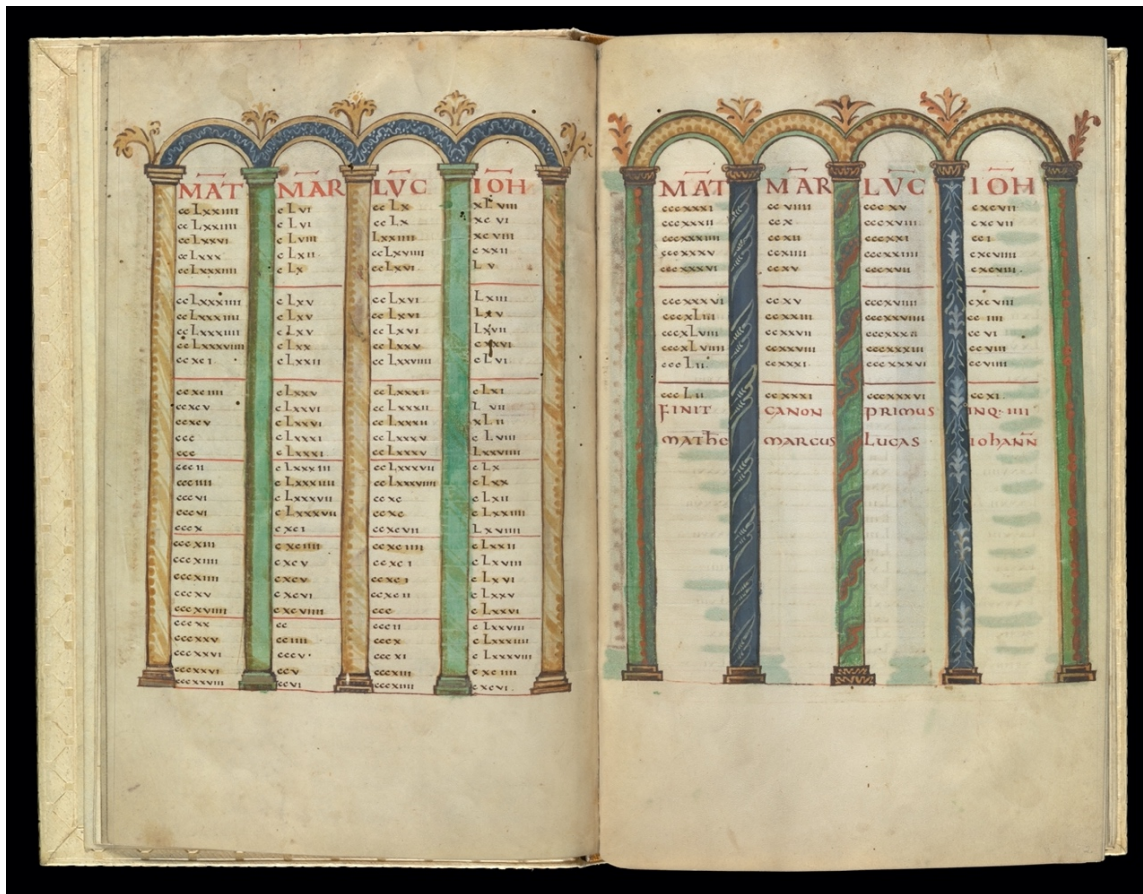 MAT MAR LVC IOH
cc Lxxiiii c Lvi cc Lx xLviii
cc Lxxiiii c Lvi cc Lx xcvi
cc Lxxvi c Lviii Lxxiiii xcviii
cc Lxxx c Lxii cc Lxviiii cxxii
cc Lxxxiiii c Lx cc Lxvi Lv
cc Lxxxiiii c Lxv cc Lxvi Lxiii
cc Lxxxiiii c Lxv cc Lxvi Lxv
cc Lxxxiiii c Lxv cc Lxvi Lxvii
cc Lxxxviiii c Lxx cc Lxxv cxxvi
ccxci c Lxxii cc Lxxviiii c Lvi
ccxciiii c Lxxv cc Lxxxi c Lxi
ccxcv c Lxxvi cc Lxxxii L vii
ccxcv c Lxxvi cc Lxxxii xLii
ccc c Lxxxi cc Lxxxv c Lviii
ccc c Lxxxi cc Lxxxv Lxxviiii
cccii c Lxxxiii cc Lxxxvii c Lx
ccciiii c Lxxxiiii cc Lxxxviiii c Lxx
cccvi c Lxxxvii ccxc c Lxii
cccvi c Lxxxvii ccxc c Lxxiiii
cccx cxci ccxcvii Lxviiii
cccxiii cxciiii ccxciiii c Lxxii
cccxiiii cxcv ccxci c Lxvi
cccxiiii cxcv ccxci c Lxvi
cccxv cxcvi ccxcii c Lxxv
cccxviiii cxcviiii ccc c Lxxvi
cccxx cc cccii c Lxxviii
cccxxv cciiii cccx c Lxxxiiii
cccxxvi cccv cccxi c Lxxxviii
cccxxvi ccv cccxiii cxciiii
cccxxviii ccvi cccxiiii cxcvi
MAT MAR LVC IOH
cccxxxi ccviiii cccxv cxcvii
cccxxxii ccx cccxviii cxcvii
cccxxxiiii ccxii cccxxi cci
cccxxxv ccxiiii cccxxiiii cxcviiii
cccxxxvi ccxv cccxvii cxcviii
cccxxxvi ccxv cccxviiii cxcviii
cccxLiii ccxxiii cccxxviiii cciiii
cccxLviii ccxxvii cccxxxii ccvi
cccxLviiii ccxxviii cccxxxiii ccviii
cccLii ccxxxi cccxxxvi ccviiii
cccLii ccxxxi cccxxxvi ccxi
FINIT CANON PRIMUS INQ·IIII
MATHE MARCUS LUCAS IOHANN